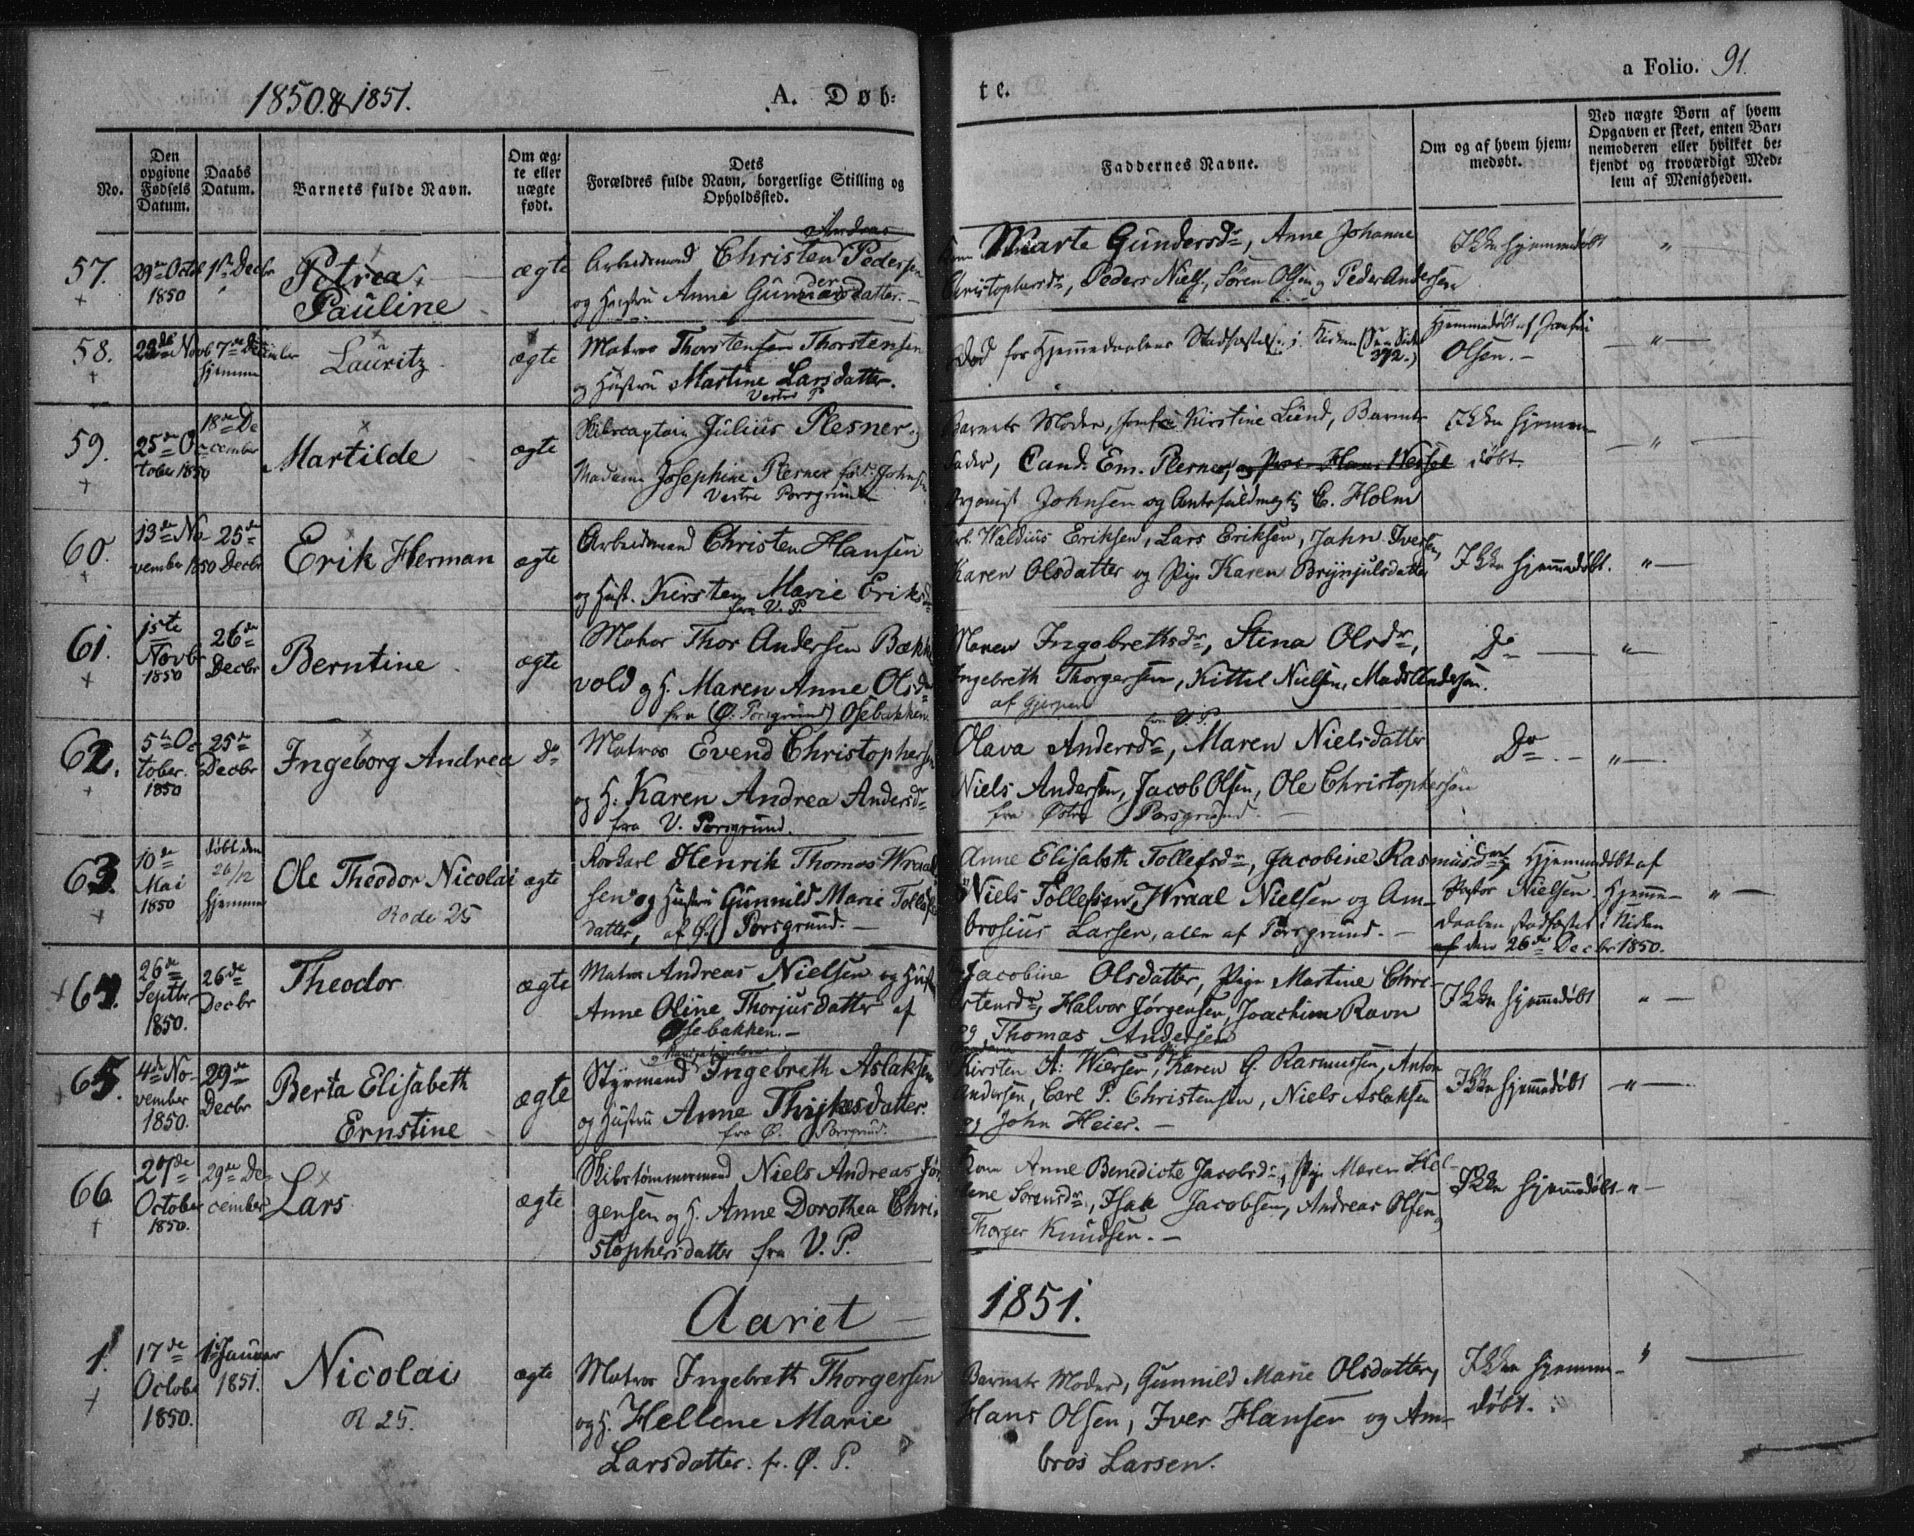 1850. & 1851.
A. Døb-
te.
a Folio. 91.
No.
Den opgivne Fødsels Datum.
Daabs Datum.
Barnets fulde Navn.
Om ægte eller uægte født.
Dets Forældres fulde Navn, borgerlige Stilling og Opholdssted.
Faddernes Navne.
Om og af hvem hjemmedøbt.
Ved uægte Børn af hvem Opgaven er skeet, enten Barnemoderen eller hvilket bekjendt og troværdigt Medlem af Menigheden.
57.
29de Octbr 1850
1ste Decbr
Petrea
Pauline
ægte
Arbeidsmand Christen Pedersen
og Hustru Anne Gundersdatter.
Marte Gundersdr, Anne Johanne
Christophersdr, Peders Niels, Søren Olsen og Peder Andersen
Ikke hjemmedøbt
58.
7de December hjemme
Lauritz
ægte
Matros Thorstensen Thorstensen
og Hustru Martine Larsdatter.
Vestre P
Død for Hjemmedaabens Stadfæstelse i Kirken (See Side 372.)
Hjemmedøbt af
Olsen.
59.
25de October 1850
18de December
Martilde
ægte
Skibscaptain Julius Plesner og
Madame Josephine Plesner fød. Johnsen
Vestre Porsgrund
Barnets Moder, Jomfru Kirstine Lund, Barnets
Fader, Cand. Em. Plesner,
Organist Johnsen og Contofuldmegtig C. Holm
Ikke hjemmedøbt.
60.
13de November 1850
25de Decbr
Erik Herman
ægte
Arbeidsmand Christen Hansen
og Hust. Kirsten Marie Eriksdr
fra V. P.
Arb. Waldius Eriksen, Lars Eriksen, John Iversen,
Karen Olsdatter og Pige Karen Brynjulsdatter
Ikke hjemmedøbt.
61.
1ste Novbr 1850
26de Decbr
Berntine
ægte
Matros Thor Andersen Bække-
vold og H. Maren Anne Olsdr
fra (Ø. Porsgrund) Osebakken.
Maren Ingebrethsdr, Stina Olsdr,
Ingebreth Thorgersen, Kittel Nielsen, Mads Andersen.
af Gjerpen
Do
62.
5te October 1850
25de Decbr
Ingeborg Andrea
do
Matros Evend Christophersen
og H. Karen Andrea Andersdr
fra V. Porsgrund.
fra V. P.
Olava Andersdr, Maren Nielsdatter
Niels Andersen, Jacob Olsen, Ole Christophersen
fra Østre Porsgrund.
Do
63.
10de Mai 1850
døbt den 26/12 hjemme
Ole Theodor Nicolai
Rode 25
ægte
Henrik Thomas Wraal-
sen og Hustru Gunnild Marie Tollefs-
datter, af Ø. Porsgrund.
Anne Elisabeth Tollefsdr, Jacobine Rasmusdr
Niels Tollefsen, Wraal Nielsen og Am-
brosius Larsen, alle af Porsgrund.
Hjemmedøbt af
Pastor Nielsen. Hjemme-
daaben stadfæstet i Kirken
den 26de Decbr 1850.
64.
26de Septbr 1850.
26de Decbr
Theodor
ægte
Matros Andreas Nielsen og Hust
Anne Oline Thorjusdatter af
Osebakken.
Jacobine Olsdatter, Pige Martine Chri-
stensdr, Halvor Jørgensen, Joachim Ravn
og Thomas Andersen
Ikke hjemmedøbt
65.
4de November 1850.
29de Decbr
Berta Elisabeth
Ernstine
ægte
Styrmand Ingebreth Aslaksen
og Hustru Anne Thrykesdatter.
fra Ø. Porsgrund.
Madame
Kirsten A. Wiersen, Karen G. Rasmussen, Anton
Andersen, Carl P. Christensen, Niels Aslaksen
og John Heier.
Ikke hjemmedøbt
66
27de October 1850.
29de December
Lars
ægte
Skibstømmermand Niels Andreas Jør-
gensen og H. Anne Dorothea Chri-
stophersdatter fra V. P.
Kone Anne Benedicte Jacobsdr, Pige Maren Hel-
lene Sørensdr, Isak Jacobsen, Andreas Olsen og
Thorger Knudsen.
Ikke hjemmedøbt
Aaret
1851.
1.
17de October 1850.
1 Januar 1851.
Nicolai
R 25.
ægte
Matros Ingebreth Thorgersen
og H. Hellene Marie
Larsdatter. fr. Ø. P.
Barnets Moder, Gunnild Marie Olsdatter,
Hans Olsen, Iver Hansen og Am-
bros Larsen.
Ikke hjemme-
døbt.